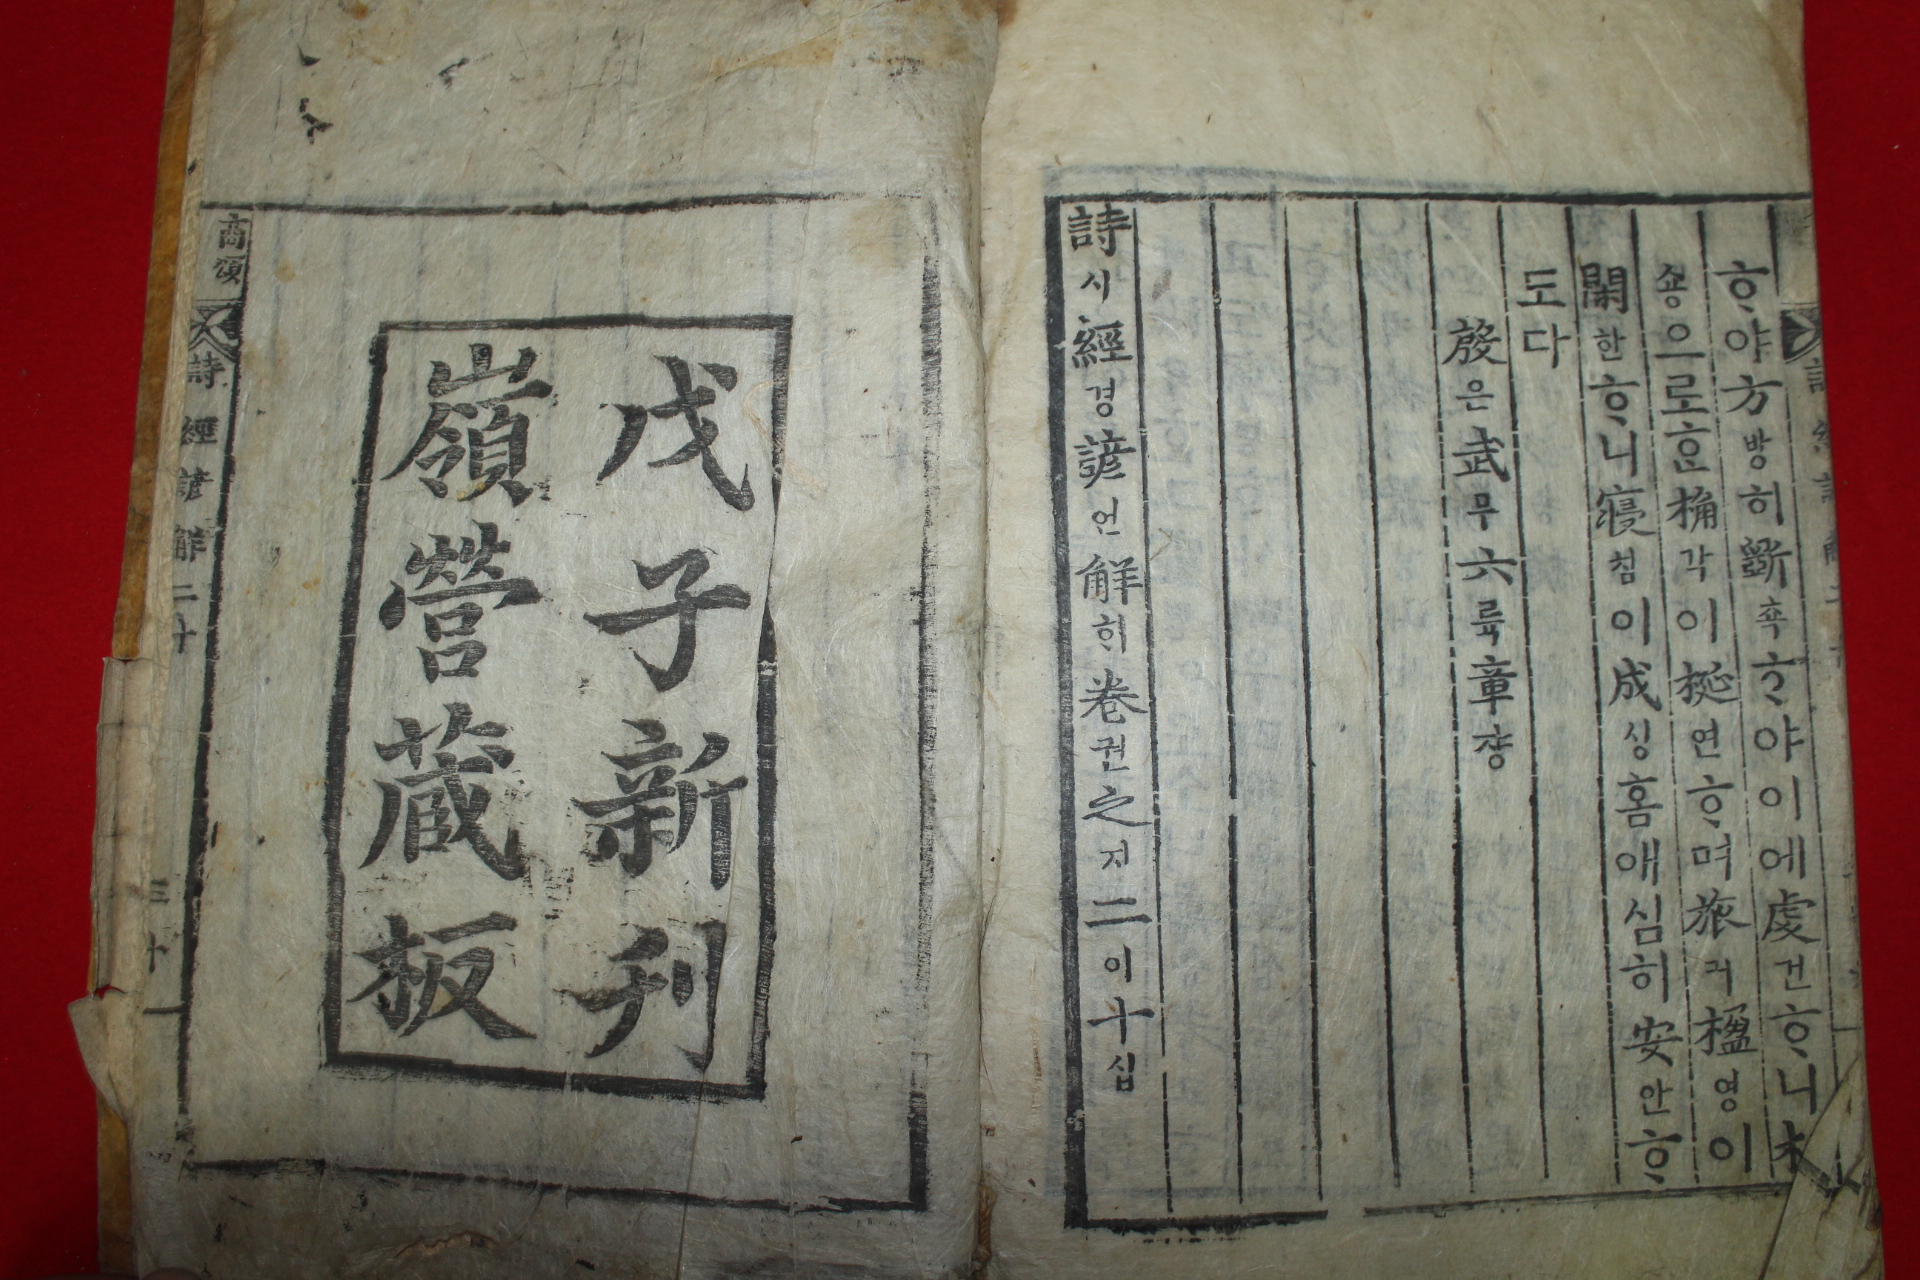 ᄒᆞ야方방히斲착ᄒᆞ야이에虔건ᄒᆞ니
숑으로ᄒᆞᆫ桷각이梴연ᄒᆞ며旅려楹영이
閑한ᄒᆞ니寢침이成셩홈애심히安안ᄒᆞ
도다
殷은武무六륙章쟝
詩시經경諺언觧ᄒᆡ卷권之지二이十십
戊子新刊
嶺營藏板
商頌 詩經諺觧二十 三十一